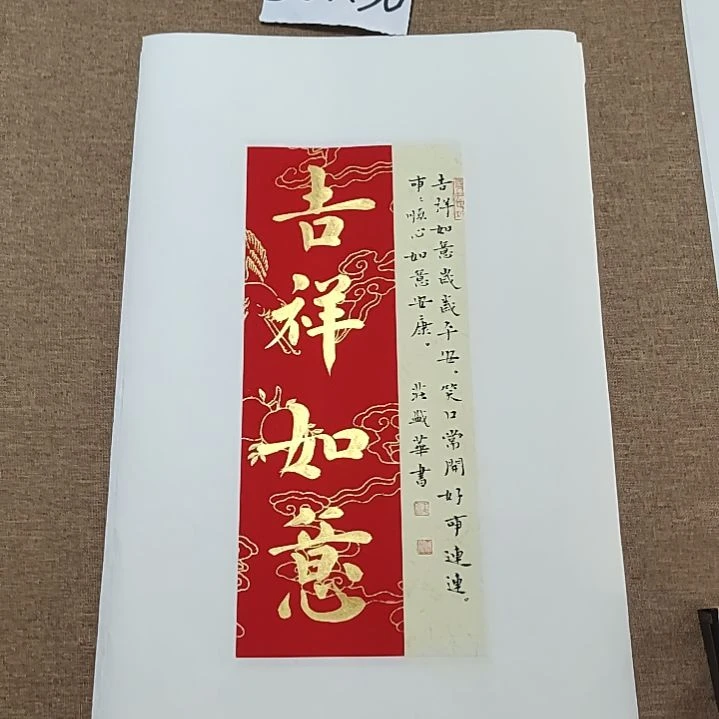 吉祥如意
吉祥如意歲歲平安。笑口常開好事連連。
事:順心如意安康。 莊盛華書